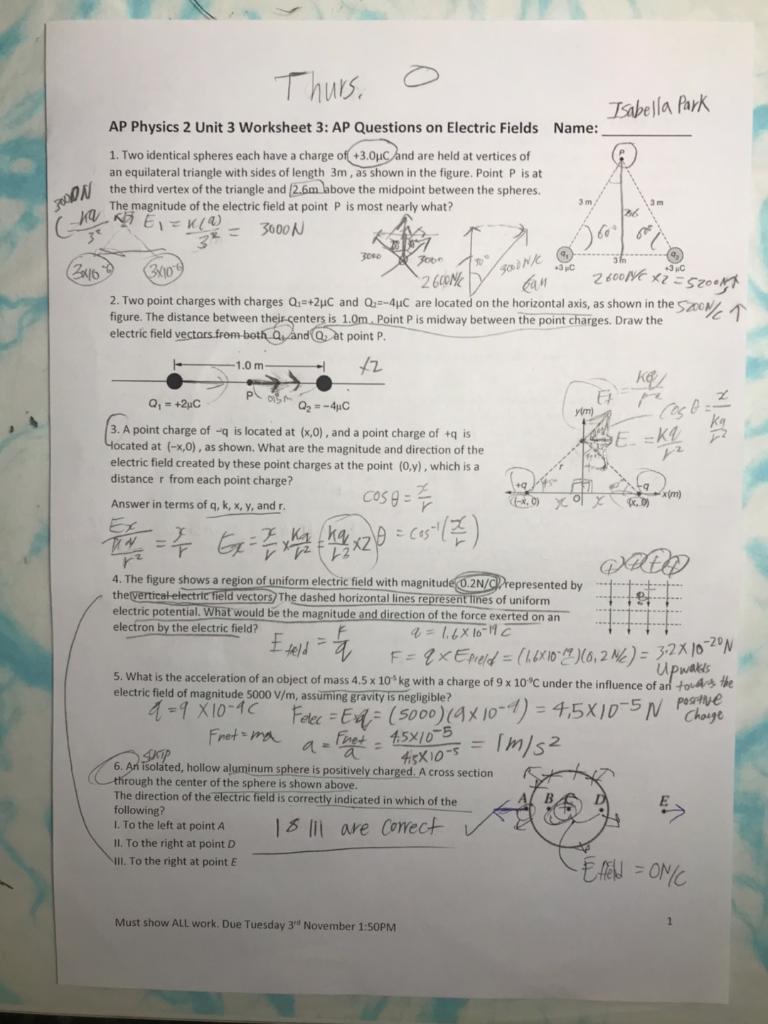 Thurs.
Isabella Park
AP Physics 2 Unit 3 Worksheet 3: AP Questions on Electric Fields Name:
1. Two identical spheres each have a charge of +3.0μC and are held at vertices of
an equilateral triangle with sides of length 3m , as shown in the figure. Point P is at
the third vertex of the triangle and 2.6m above the midpoint between the spheres.
The magnitude of the electric field at point P is most nearly what?
P
3 m 3 m
60° 60°
q₁ 3 m q₂
+3 μC +3 μC
3000N
E₁ = K(q)/3² = 3000N
3x10⁻⁶ 3x10⁻⁶
3000 3000
2600N/C 30° 3000N/C
2600N/C x2 = 5200N
5200N/C ↑
2. Two point charges with charges Q₁=+2μC and Q₂=−4μC are located on the horizontal axis, as shown in the
figure. The distance between their centers is 1.0m . Point P is midway between the point charges. Draw the
electric field vectors from both Q₁ and Q₂ at point P.
1.0 m x2
P 0.5m
Q₁ = +2μC Q₂ = −4μC
3. A point charge of −q is located at (x,0) , and a point charge of +q is
located at (−x,0) , as shown. What are the magnitude and direction of the
electric field created by these point charges at the point (0,y) , which is a
distance r from each point charge?
Answer in terms of q, k, x, y, and r.
y(m)
E+ = kq/r²
E− = kq/r²
r
+q −q
(−x, 0) x O x (x, 0) x(m)
cosθ = x/r
Ex/(kq/r²) = x/r Ex = x/r x kq/r² = kq/r³ x2 θ = cos⁻¹(x/r)
4. The figure shows a region of uniform electric field with magnitude 0.2N/C, represented by
the vertical electric field vectors. The dashed horizontal lines represent lines of uniform
electric potential. What would be the magnitude and direction of the force exerted on an
electron by the electric field?
E field = F/q
q = 1.6 x 10⁻¹⁹ C
F = q x Efield = (1.6x10⁻¹⁹)(0.2 N/C) = 3.2 x 10⁻²⁰ N
Upwards
towards the
positive
charge
5. What is the acceleration of an object of mass 4.5 x 10⁻⁵ kg with a charge of 9 x 10⁻⁹C under the influence of an
electric field of magnitude 5000 V/m, assuming gravity is negligible?
q = 9 x 10⁻⁹ C Felec = Exq = (5000)(9 x 10⁻⁹) = 4.5 x 10⁻⁵ N
Fnet = ma a = Fnet/a = 4.5x10⁻⁵/4.5x10⁻⁵ = 1 m/s²
SKIP
6. An isolated, hollow aluminum sphere is positively charged. A cross section
through the center of the sphere is shown above.
The direction of the electric field is correctly indicated in which of the
following?
I. To the left at point A
II. To the right at point D
III. To the right at point E
I & III are correct
A B C D E
E field = 0N/C
Must show ALL work. Due Tuesday 3rd November 1:50PM
1